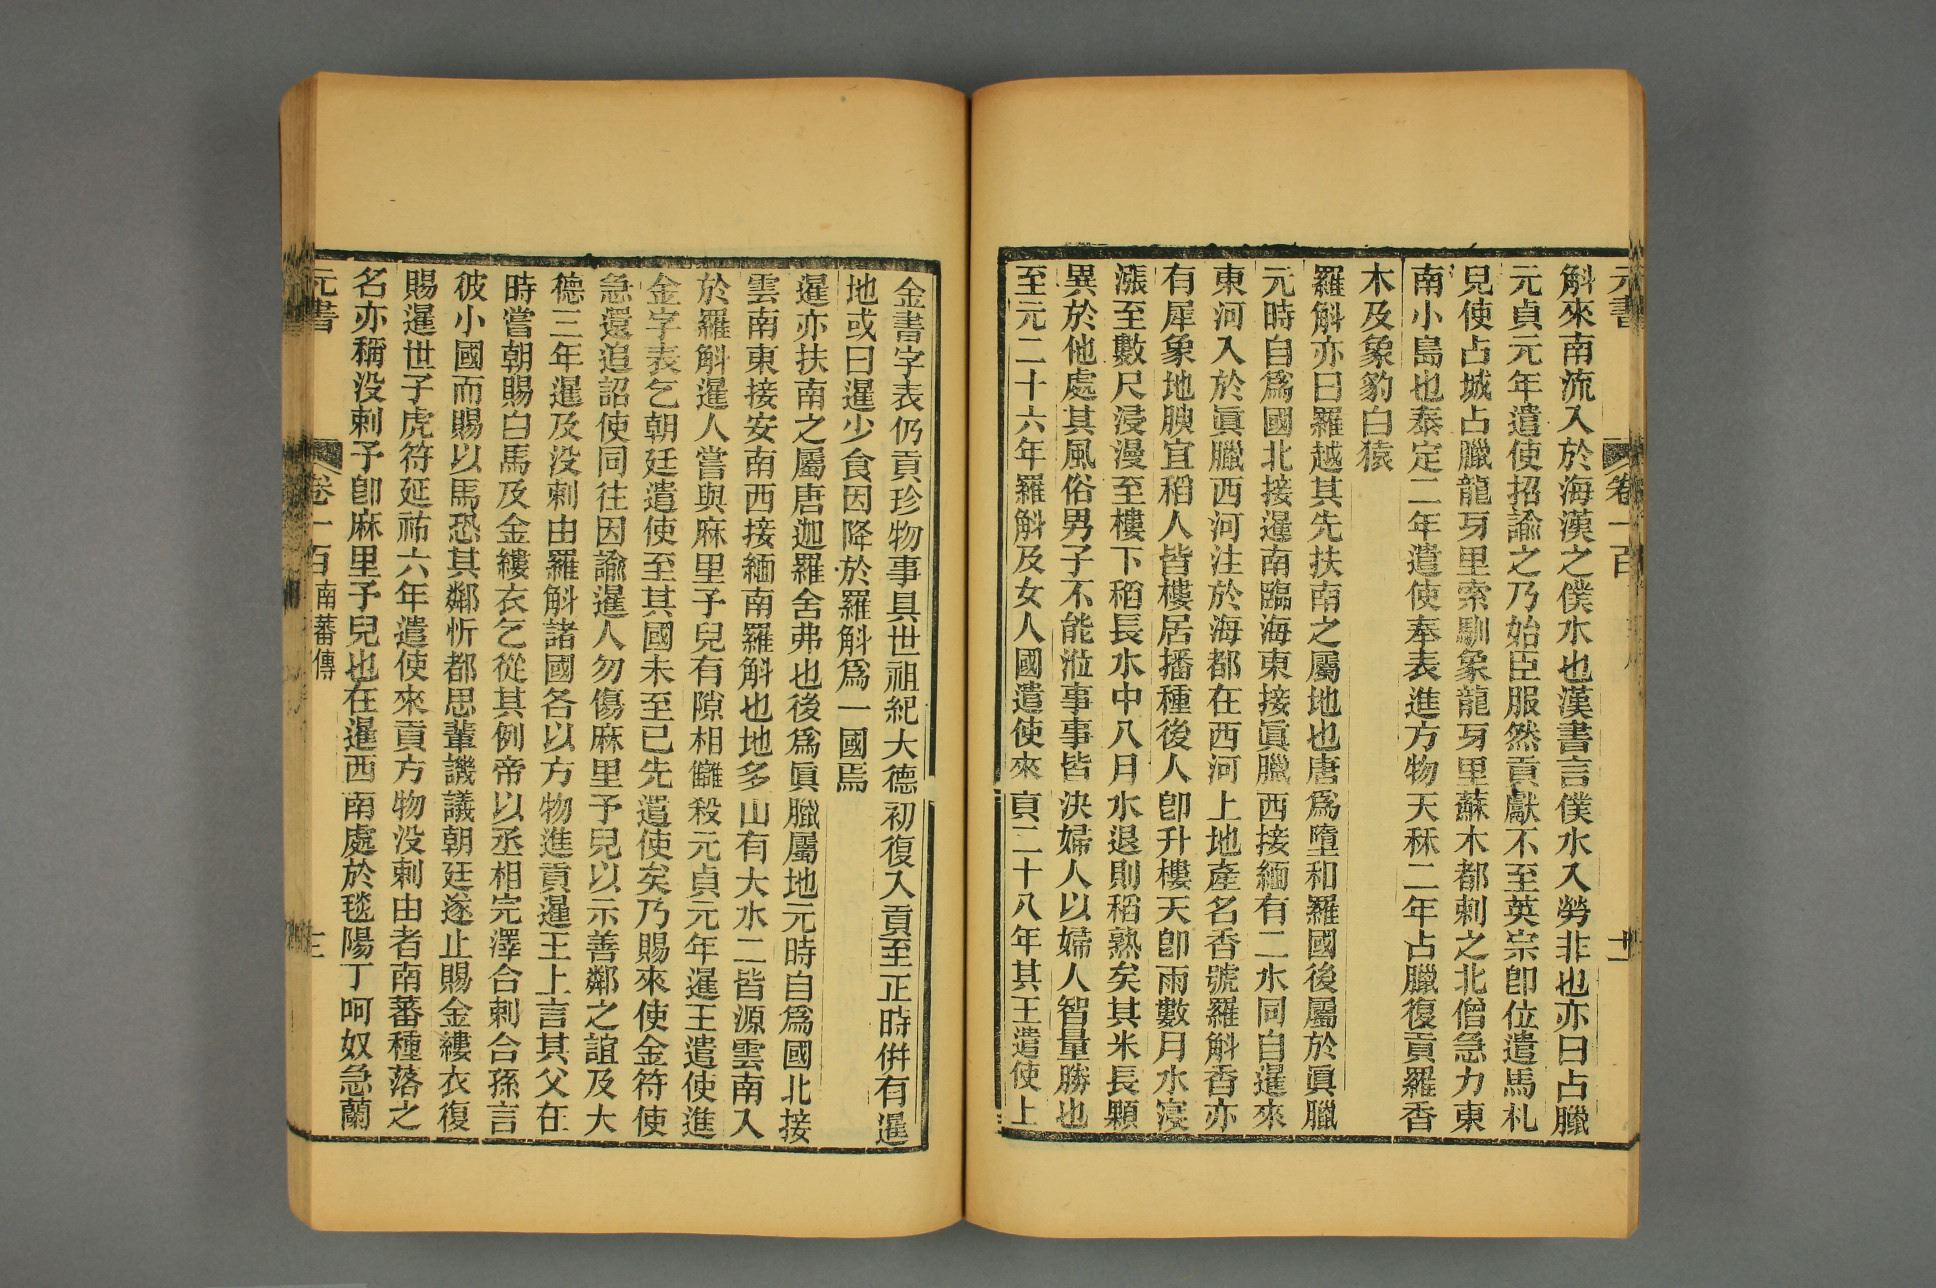 元書 卷一百
斛來南流入於海漢之僕水也漢書言僕水入勞非也亦曰占臘
元貞元年遣使招諭之乃始臣服然貢獻不至英宗卽位遣馬札
兒使占城占臘龍牙里索馴象龍牙里蘇木都剌之北僧急力東
南小島也泰定二年遣使奉表進方物天秝二年占臘復貢羅香
木及象豹白猿
羅斛亦曰羅越其先扶南之屬地也唐爲墮和羅國後屬於眞臘
元時自爲國北接暹南臨海東接眞臘西接緬有二水同自暹來
東河入於眞臘西河注於海都在西河上地產名香號羅斛香亦
有犀象地腴宜稻人皆樓居播種後人卽升樓天卽雨數月水寖
漲至數尺浸漫至樓下稻長水中八月水退則稻熟矣其米長顆
異於他處其風俗男子不能涖事事皆決婦人以婦人智量勝也
至元二十六年羅斛及女人國遣使來貢二十八年其王遣使上
金書字表仍貢珍物事具世祖紀大德初復入貢至正時倂有暹
地或曰暹少食因降於羅斛爲一國焉
暹亦扶南之屬唐迦羅舍弗也後爲眞臘屬地元時自爲國北接
雲南東接安南西接緬南羅斛也地多山有大水二皆源雲南入
於羅斛暹人嘗與麻里予兒有隙相讎殺元貞元年暹王遣使進
金字表乞朝廷遣使至其國未至已先遣使矣乃賜來使金符使
急還追詔使同往因諭暹人勿傷麻里予兒以示善鄰之誼及大
德三年暹及没剌由羅斛諸國各以方物進貢暹王上言其父在
時嘗朝賜白馬及金縷衣乞從其例帝以丞相完澤合剌合孫言
彼小國而賜以馬恐其鄰忻都思輩譏議朝廷遂止賜金縷衣復
賜暹世子虎符延祐六年遣使來貢方物没剌由者南蕃種落之
名亦稱没剌予卽麻里予兒也在暹西南處於毯陽丁呵奴急蘭
元書 卷一百 南蕃傳